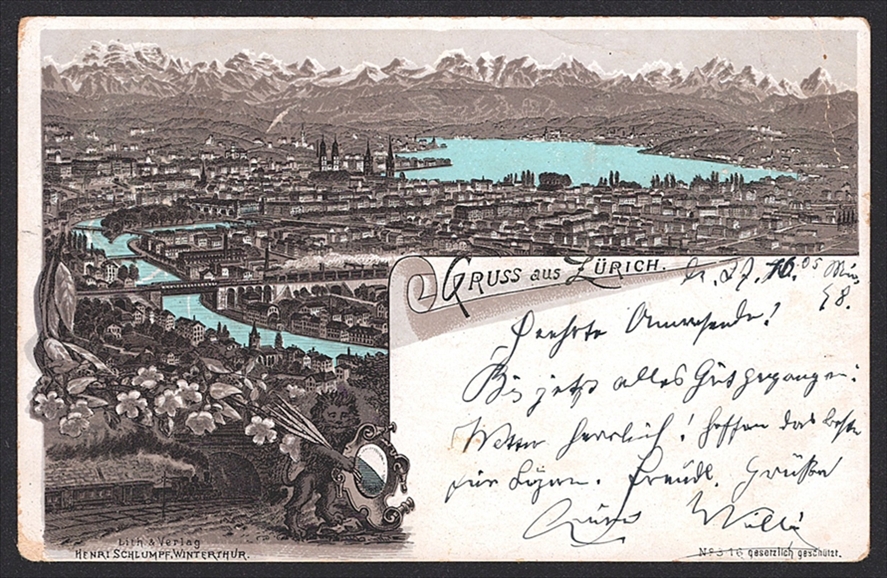 GRUSS aus ZÜRICH.
27.
Geehrte Anwesende!
Bis jetzt alles Gut gegangen.
Wetter herrlich! hoffen das beste
für Freundl. Grüße
Willi
Lith. & Verlag
HENRI SCHLUMPF, WINTERTHUR.
No 316 gesetzlich geschützt.